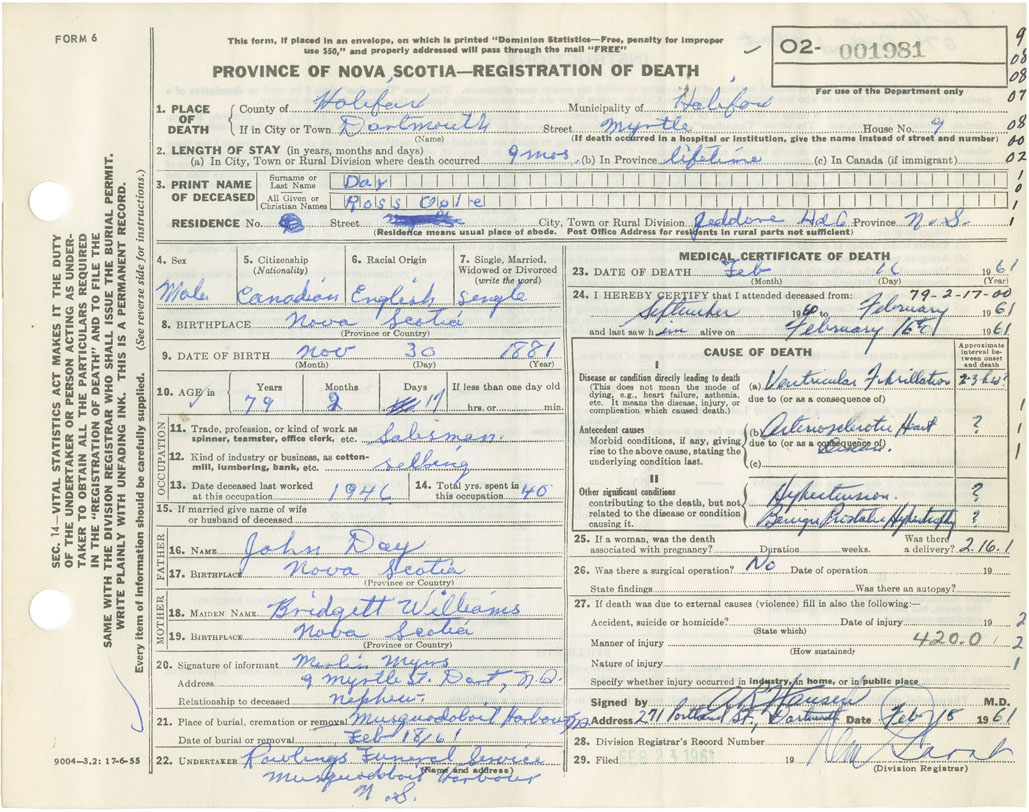 FORM 6
This form, if placed in an envelope, on which is printed "Dominion Statistics—Free, penalty for improper
use $50," and properly addressed will pass through the mail "FREE"
O2- 001981
For use of the Department only
PROVINCE OF NOVA SCOTIA—REGISTRATION OF DEATH
1. PLACE OF DEATH County of Halifax Municipality of Halifax
If in City or Town Dartmouth Street Myrtle House No. 9
(Name) (If death occurred in a hospital or institution, give the name instead of street and number)
2. LENGTH OF STAY (in years, months and days)
(a) In City, Town or Rural Division where death occurred 9 mos. (b) In Province lifetime (c) In Canada (if immigrant)
3. PRINT NAME OF DECEASED Surname or Last Name Day
All Given or Christian Names Ross
RESIDENCE No. Street City, Town or Rural Division Province N.S.
(Residence means usual place of abode. Post Office Address for residents in rural parts not sufficient)
4. Sex Male
5. Citizenship (Nationality) Canadian
6. Racial Origin English
7. Single, Married, Widowed or Divorced (write the word) Single
8. BIRTHPLACE Nova Scotia
(Province or Country)
9. DATE OF BIRTH Nov 30 1881
(Month) (Day) (Year)
10. AGE in Years Months Days If less than one day old
79 2 17 hrs. or min.
OCCUPATION
11. Trade, profession, or kind of work as spinner, teamster, office clerk, etc. Salesman
12. Kind of industry or business, as cotton-mill, lumbering, bank, etc. selling
13. Date deceased last worked at this occupation 1946 14. Total yrs. spent in this occupation 40
15. If married give name of wife or husband of deceased
FATHER
16. NAME John Day
17. BIRTHPLACE Nova Scotia
(Province or Country)
MOTHER
18. MAIDEN NAME Bridgett Williams
19. BIRTHPLACE Nova Scotia
(Province or Country)
20. Signature of informant Myers
Address 9 Myrtle St. Dart, N.S.
Relationship to deceased nephew
21. Place of burial, cremation or removal Musquodoboit Harbour
Date of burial or removal Feb 18/61
22. UNDERTAKER Rawlings Funeral Service
(Name and address)
Musquodoboit Harbour
N S.
9004—3.2: 17-6-55
MEDICAL CERTIFICATE OF DEATH
23. DATE OF DEATH Feb 16 1961
(Month) (Day) (Year)
79-2-17-00
24. I HEREBY CERTIFY that I attended deceased from:
September 1960 to February 1961
and last saw him alive on February 16th 1961
CAUSE OF DEATH
Approximate interval between onset and death
I
Disease or condition directly leading to death (This does not mean the mode of dying, e.g., heart failure, asthenia, etc. It means the disease, injury, or complication which caused death.)
(a) Ventricular Fibrillation 2-3 hrs?
due to (or as a consequence of)
Antecedent causes
Morbid conditions, if any, giving rise to the above cause, stating the underlying condition last.
(b) Arteriosclerotic Heart ?
due to (or as a consequence of)
Disease
(c)
II
Other significant conditions contributing to the death, but not related to the disease or condition causing it.
Hypertension. ?
Benign Prostatic Hypertrophy ?
25. If a woman, was the death associated with pregnancy? Duration weeks. Was there a delivery? 2.16.1
26. Was there a surgical operation? No Date of operation 19
State findings Was there an autopsy?
27. If death was due to external causes (violence) fill in also the following:—
Accident, suicide or homicide? Date of injury 19
(State which)
Manner of injury 420.0
(How sustained)
Nature of injury
Specify whether injury occurred in industry, in home, or in public place
Signed by M.D.
Address 271 Portland St., Dartmouth Date Feb 18 1961
28. Division Registrar's Record Number
29. Filed FEB 23 1961 19
(Division Registrar)
SEC. 14—VITAL STATISTICS ACT MAKES IT THE DUTY
OF THE UNDERTAKER OR PERSON ACTING AS UNDER-
TAKER TO OBTAIN ALL THE PARTICULARS REQUIRED
IN THE "REGISTRATION OF DEATH" AND TO FILE THE
SAME WITH THE DIVISION REGISTRAR WHO SHALL ISSUE THE BURIAL PERMIT.
WRITE PLAINLY WITH UNFADING INK. THIS IS A PERMANENT RECORD.
Every item of information should be carefully supplied. (See reverse side for instructions.)
9
08
08
07
08
00
02
1
0
1
1
1
1
1
2
2
1